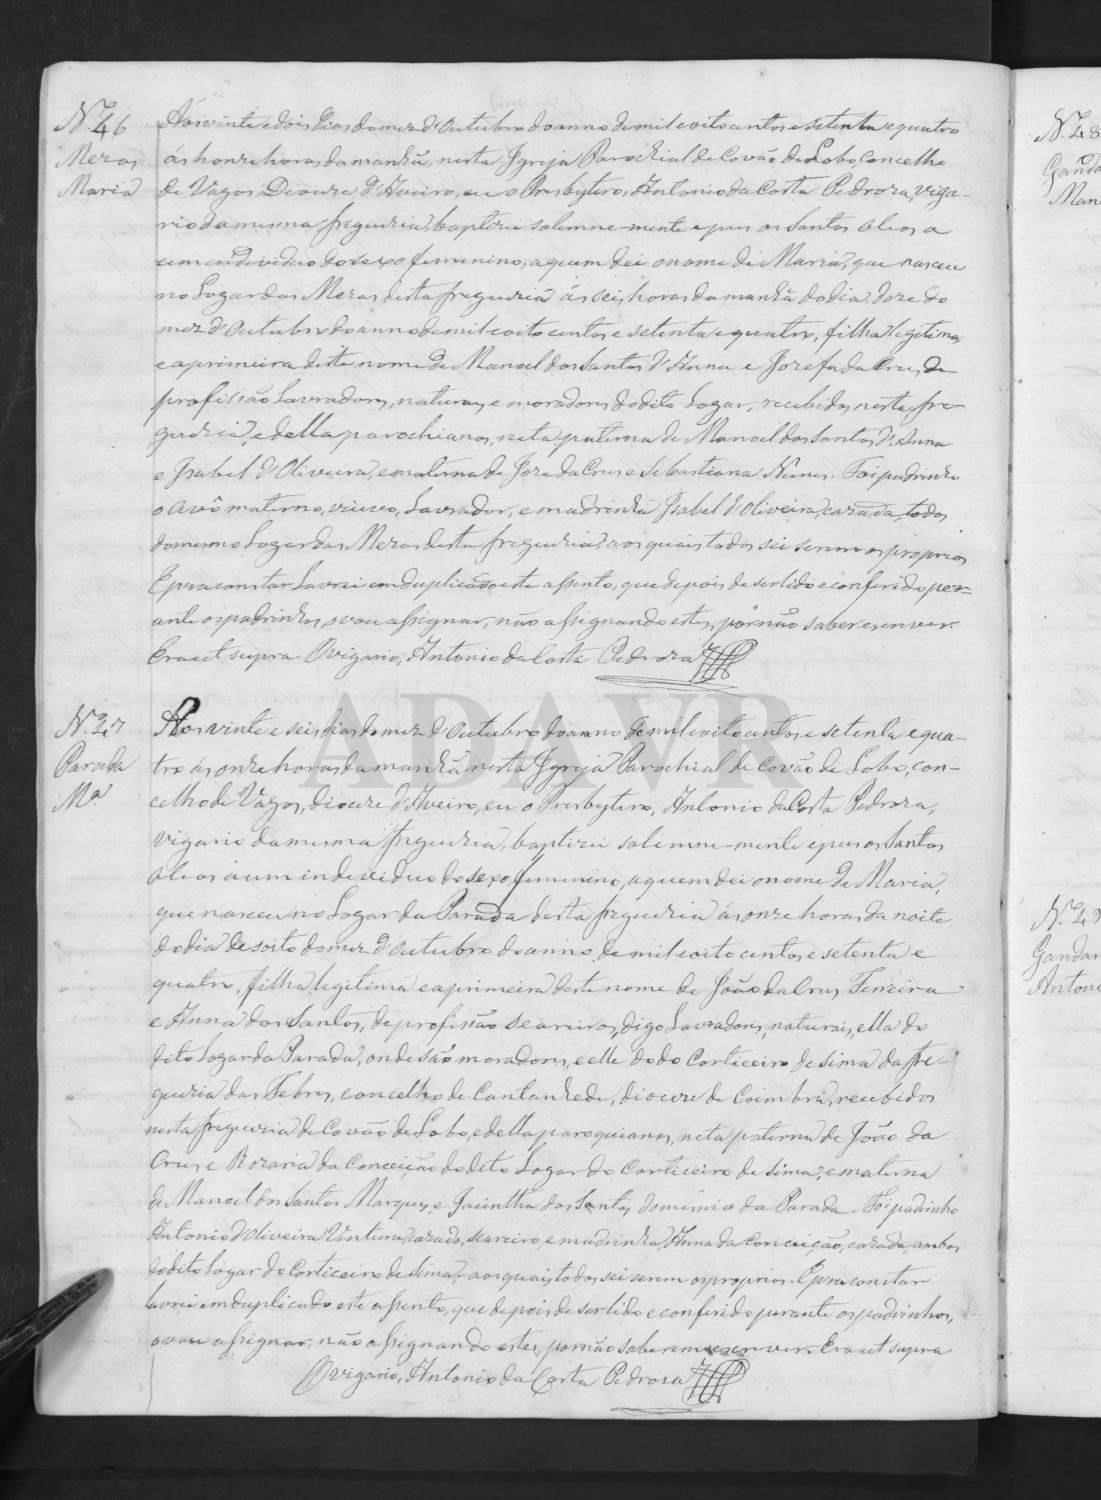 N.º 46
Mezas
Maria
Aos vinte e dois dias do mez d'Outubro do anno de mil e oito centos e setenta e quatro
ás honze horas da manhã, nesta Igreja Parochial de Covão de Lobo Concelho
de Vagos Diocese d'Aveiro, eu o Presbytero, Antonio da Costa Pedroza, viga-
rio da mesma freguezia, baptizei solemne-mente e pus os Santos Oleos a
um individuo do sexo femenino, a quem dei o nome de Maria, que nasceu
no Lugar das Mezas desta freguezia ás seis horas da manhã do dia doze do
mez d'Outubro do anno de mil e oito centos e setenta e quatro, filha legitima,
e a primeira deste nome de Manoel dos Santos d'Anna e Jozefa da Crus, de
profissão Lavradores, naturaes e moradores do dito Lugar, recebidos nesta fre-
guezia, e della parochianos, neta paterna de Manoel dos Santos d'Anna
e Isabel d'Oliveira, e materna de Joze da Crus e Sebastiana Nunes. Foi padrinho
o avô materno, viuvo, Lavrador, e madrinha Isabel d'Oliveira, cazada, todos
do mesmo Lugar das Mezas desta freguezia, aos quais todos sei serem os proprios
E para constar Lavrei em duplicado este assento, que depois de ser lido e conferido per-
ante os padrinhos, o vou assignar, não assignando estes, por não saber escrever.
Era ut supra O vigario, Antonio da Costa Pedroza
N.º 47
Parada
Ma
Aos vinte e seis dias do mez d'Outubro do anno de mil e oito centos e setenta e qua-
tro ás onze horas da manhã nesta Igreja Parochial de Covão de Lobo, con-
celho de Vagos, diocese d'Aveiro, eu o Presbytero, Antonio da Costa Pedroza,
vigario da mesma freguezia, baptizei solemne-mente e pus os Santos
Oleos a um individuo do sexo femenino, a quem dei o nome de Maria,
que nasceu no Lugar da Parada desta freguezia ás onze horas da noite
do dia desoito do mez d'Outubro do anno de mil e oito centos e setenta e
quatro, filha legitima e a primeira deste nome de João da Crus Ferreira
e Anna dos Santos, de profissão seareiros, digo Lavradores, naturais, ella do
dito Lugar da Parada, onde são moradores, e elle do do Corticeiro de Sima da fre-
guezia das Febres, concelho de Cantanhede, diocese de Coimbra, recebidos
nesta freguezia de Covão de Lobo, e della paroquianos, neta paterna de João da
Crus e Rozaria da Conceição do dito Lugar do Corticeiro de Sima, e materna
de Manoel dos Santos Marques e Jacintha dos Santos do mesmo da Parada. Foi padrinho
Antonio d'Oliveira Ventura, cazado, seareiro, e madrinha, Anna da Conceição, cazada, ambos
do dito Lugar do Corticeiro de Sima, aos quais todos sei serem os proprios. E para constar
lavrei em duplicado este assento, que depois de ser lido e conferido perante os padrinhos,
o vou assignar, não assignando estes, por não saberem escrever. Era ut supra
O vigario, Antonio da Costa Pedroza
ADAVR
N.º 48
N.º 49